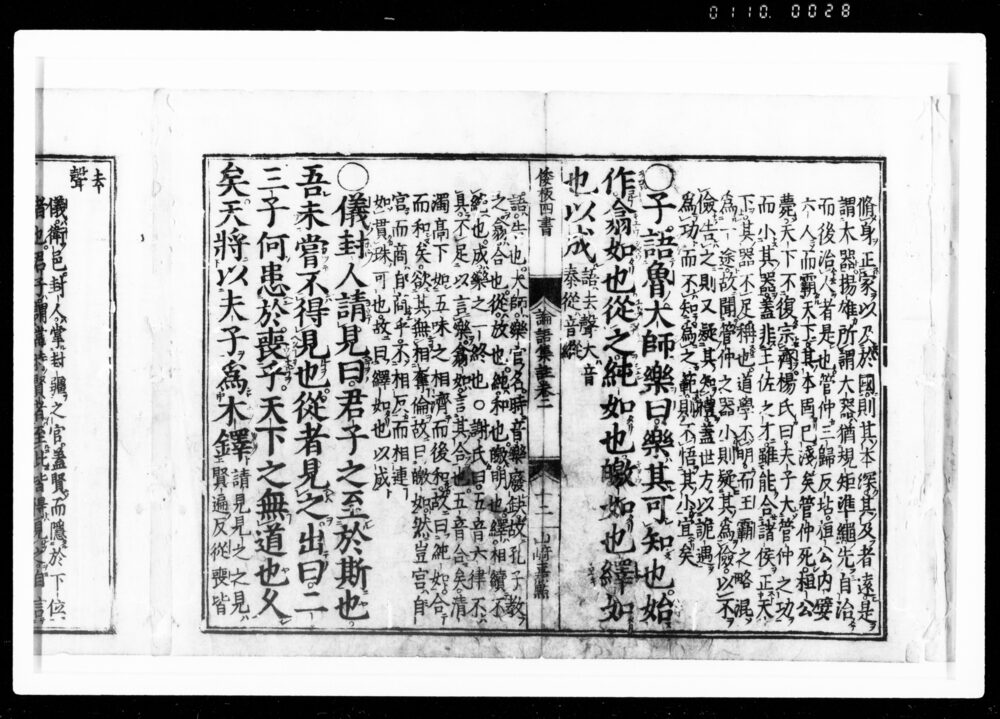 0110. 0028
脩身正家以及於國則其本深其及者遠是
謂大器揚雄所謂大器猶規矩準繩先自治
而後治人者是也管仲三歸反坫桓公内嬖
六人而霸天下其本固已淺矣管仲死桓公
薨天下不復宗齊楊氏曰夫子大管仲之功
而小其器蓋非王佐之才雖能合諸侯正天
下其器不足稱也道學不明而王霸之略混
爲一途故聞管仲之器小則疑其爲儉以不
儉告之則又疑其知禮蓋世方以詭遇
爲功而不知爲之範則不悟其小宜矣
○子語魯大師樂曰樂其可知也始
作翕如也從之純如也皦如也繹如
也以成語去聲大音泰從音縱
倭板四書
論語集註卷二
十二
語告也大師樂官名時音樂廢缺故孔子教
之翕合也從放也純和也皦明也繹相續不
絶也成樂之一終也○謝氏曰五音六律不
具不足以言樂翕如言其合也五音合矣清
濁高下如五味之相濟而後和故曰純如合
而和矣欲其無相奪倫故曰皦如然豈宮自
宮而商自商乎不相反而相連
如貫珠可也故曰繹如也以成
○儀封人請見曰君子之至於斯也
吾未嘗不得見也從者見之出曰二
三子何患於喪乎天下之無道也久
矣天將以夫子爲木鐸請見見之之見賢遍反從喪皆
去聲
儀衛邑封人掌封疆之官蓋賢而隱於下位
者也君子謂當時賢者至此皆得見之自言